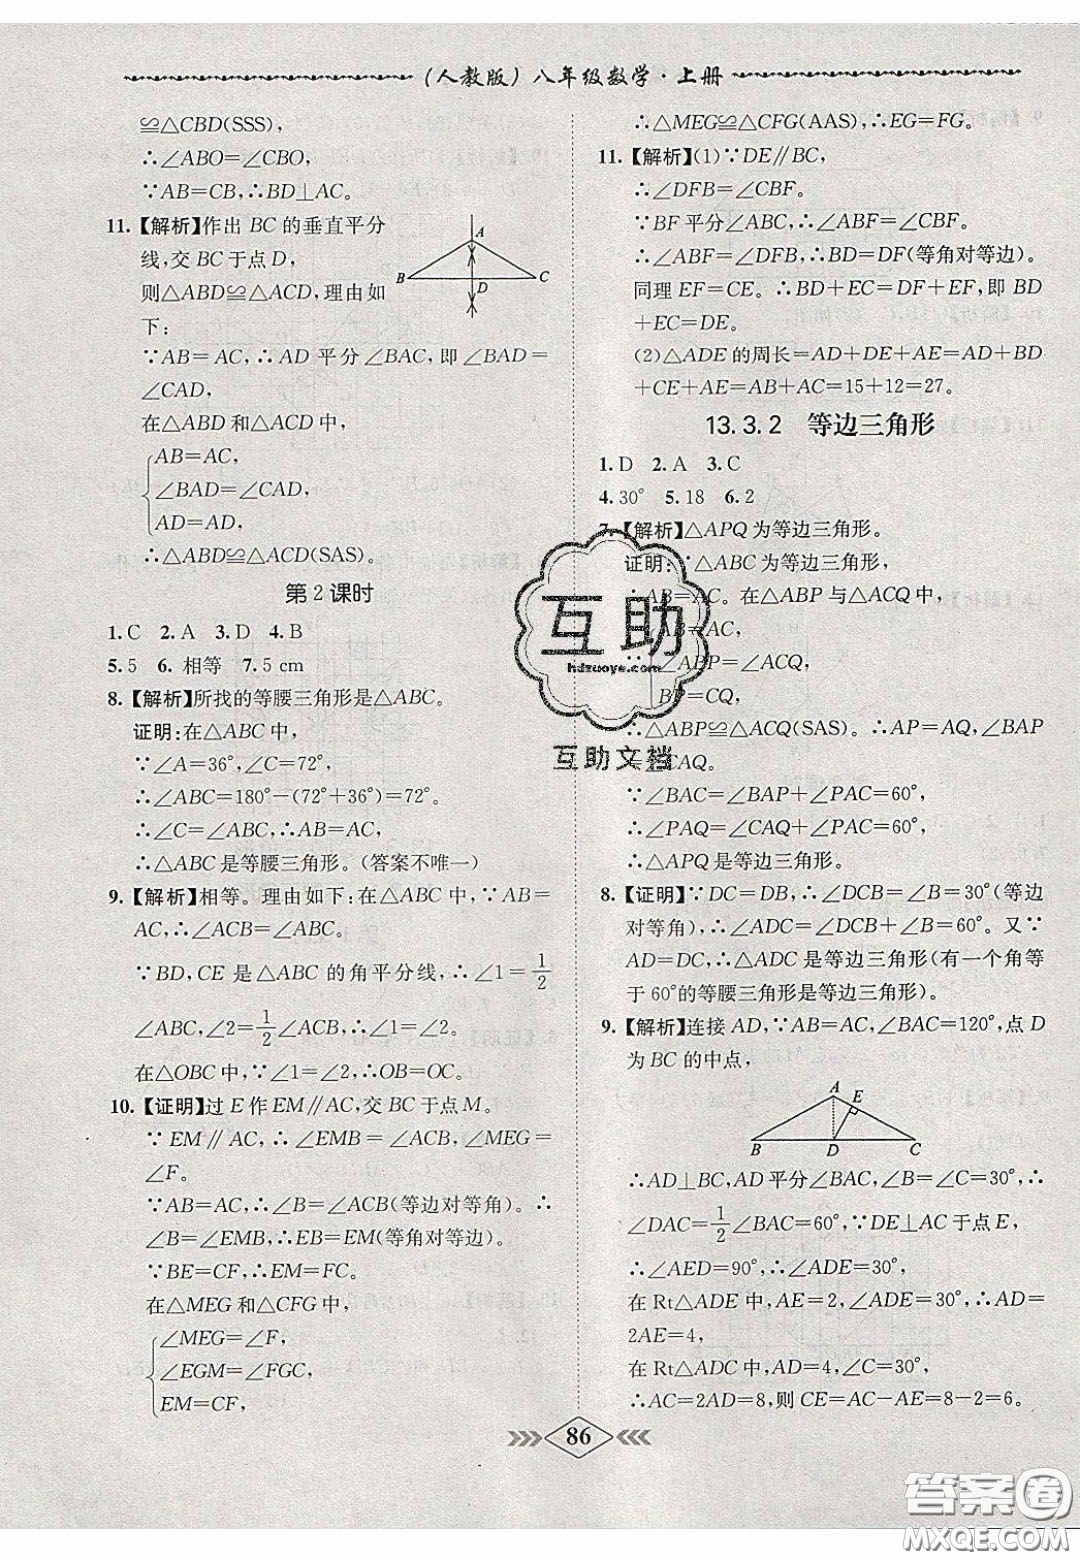 (人教版)八年级数学·上册
≌△CBD(SSS),
∴∠ABO=∠CBO,
∵AB=CB,∴BD⊥AC.
11.【解析】作出 BC 的垂直平分
线,交 BC 于点 D,
则△ABD≌△ACD,理由如
下:
A
B
D
C
∵AB=AC,∴AD 平分∠BAC,即∠BAD=
∠CAD,
在△ABD 和△ACD 中,
AB=AC,
∠BAD=∠CAD,
AD=AD,
∴△ABD≌△ACD(SAS).
第 2 课时
1.C 2.A 3.D 4.B
5.5 6.相等 7.5 cm
8.【解析】所找的等腰三角形是△ABC。
证明:在△ABC 中,
∵∠A=36°,∠C=72°,
∴∠ABC=180°-(72°+36°)=72°.
∴∠C=∠ABC,∴AB=AC,
∴△ABC 是等腰三角形。(答案不唯一)
9.【解析】相等。理由如下:在△ABC 中,∵AB=
AC,∴∠ACB=∠ABC.
∵BD,CE 是△ABC 的角平分线,∴∠1=1/2
∠ABC,∠2=1/2∠ACB,∴∠1=∠2.
在△OBC 中,∵∠1=∠2,∴OB=OC.
10.【证明】过 E 作 EM∥AC,交 BC 于点 M。
∵EM∥AC,∴∠EMB=∠ACB,∠MEG=
∠F.
∵AB=AC,∴∠B=∠ACB(等边对等角)。∴
∠B=∠EMB,∴EB=EM(等角对等边)。
∵BE=CF,∴EM=CF.
在△MEG 和△CFG 中,
∠MEG=∠F,
∠EGM=∠FGC,
EM=CF,
∴△MEG≌△CFG(AAS),∴EG=FG.
11.【解析】(1)∵DE∥BC,
∴∠DFB=∠CBF。
∵BF 平分∠ABC,∴∠ABF=∠CBF.
∴∠ABF=∠DFB,∴BD=DF(等角对等边)。
同理 EF=CE。∴BD+EC=DF+EF,即 BD
+EC=DE.
(2)△ADE 的周长=AD+DE+AE=AD+BD
+CE+AE=AB+AC=15+12=27.
13.3.2 等边三角形
1.D 2.A 3.C
4.30° 5.18 6.2
7.【解析】△APQ 为等边三角形。
证明:∵△ABC 为等边三角形,
∴AB=AC。在△ABP 与△ACQ 中,
AB=AC,
∠ABP=∠ACQ,
BP=CQ,
∴△ABP≌△ACQ(SAS)。∴AP=AQ,∠BAP
=∠CAQ。
∵∠BAC=∠BAP+∠PAC=60°,
∴∠PAQ=∠CAQ+∠PAC=60°,
∴△APQ 是等边三角形。
8.【证明】∵DC=DB,∴∠DCB=∠B=30°(等边
对等角),∴∠ADC=∠DCB+∠B=60°。又∵
AD=DC,∴△ADC 是等边三角形(有一个角等
于 60°的等腰三角形是等边三角形)。
9.【解析】连接 AD,∵AB=AC,∠BAC=120°,点 D
为 BC 的中点,
A
E
B
D
C
∴AD⊥BC,AD 平分∠BAC,∠B=∠C=30°,∴
∠DAC=1/2∠BAC=60°,∵DE⊥AC 于点 E,
∴∠AED=90°,∴∠ADE=30°,
在 Rt△ADE 中,AE=2,∠ADE=30°,∴AD=
2AE=4,
在 Rt△ADC 中,AD=4,∠C=30°,
∴AC=2AD=8,则 CE=AC-AE=8-2=6.
86
互助
hdzuoye.com
互助文档
答案圈
MXQE.COM